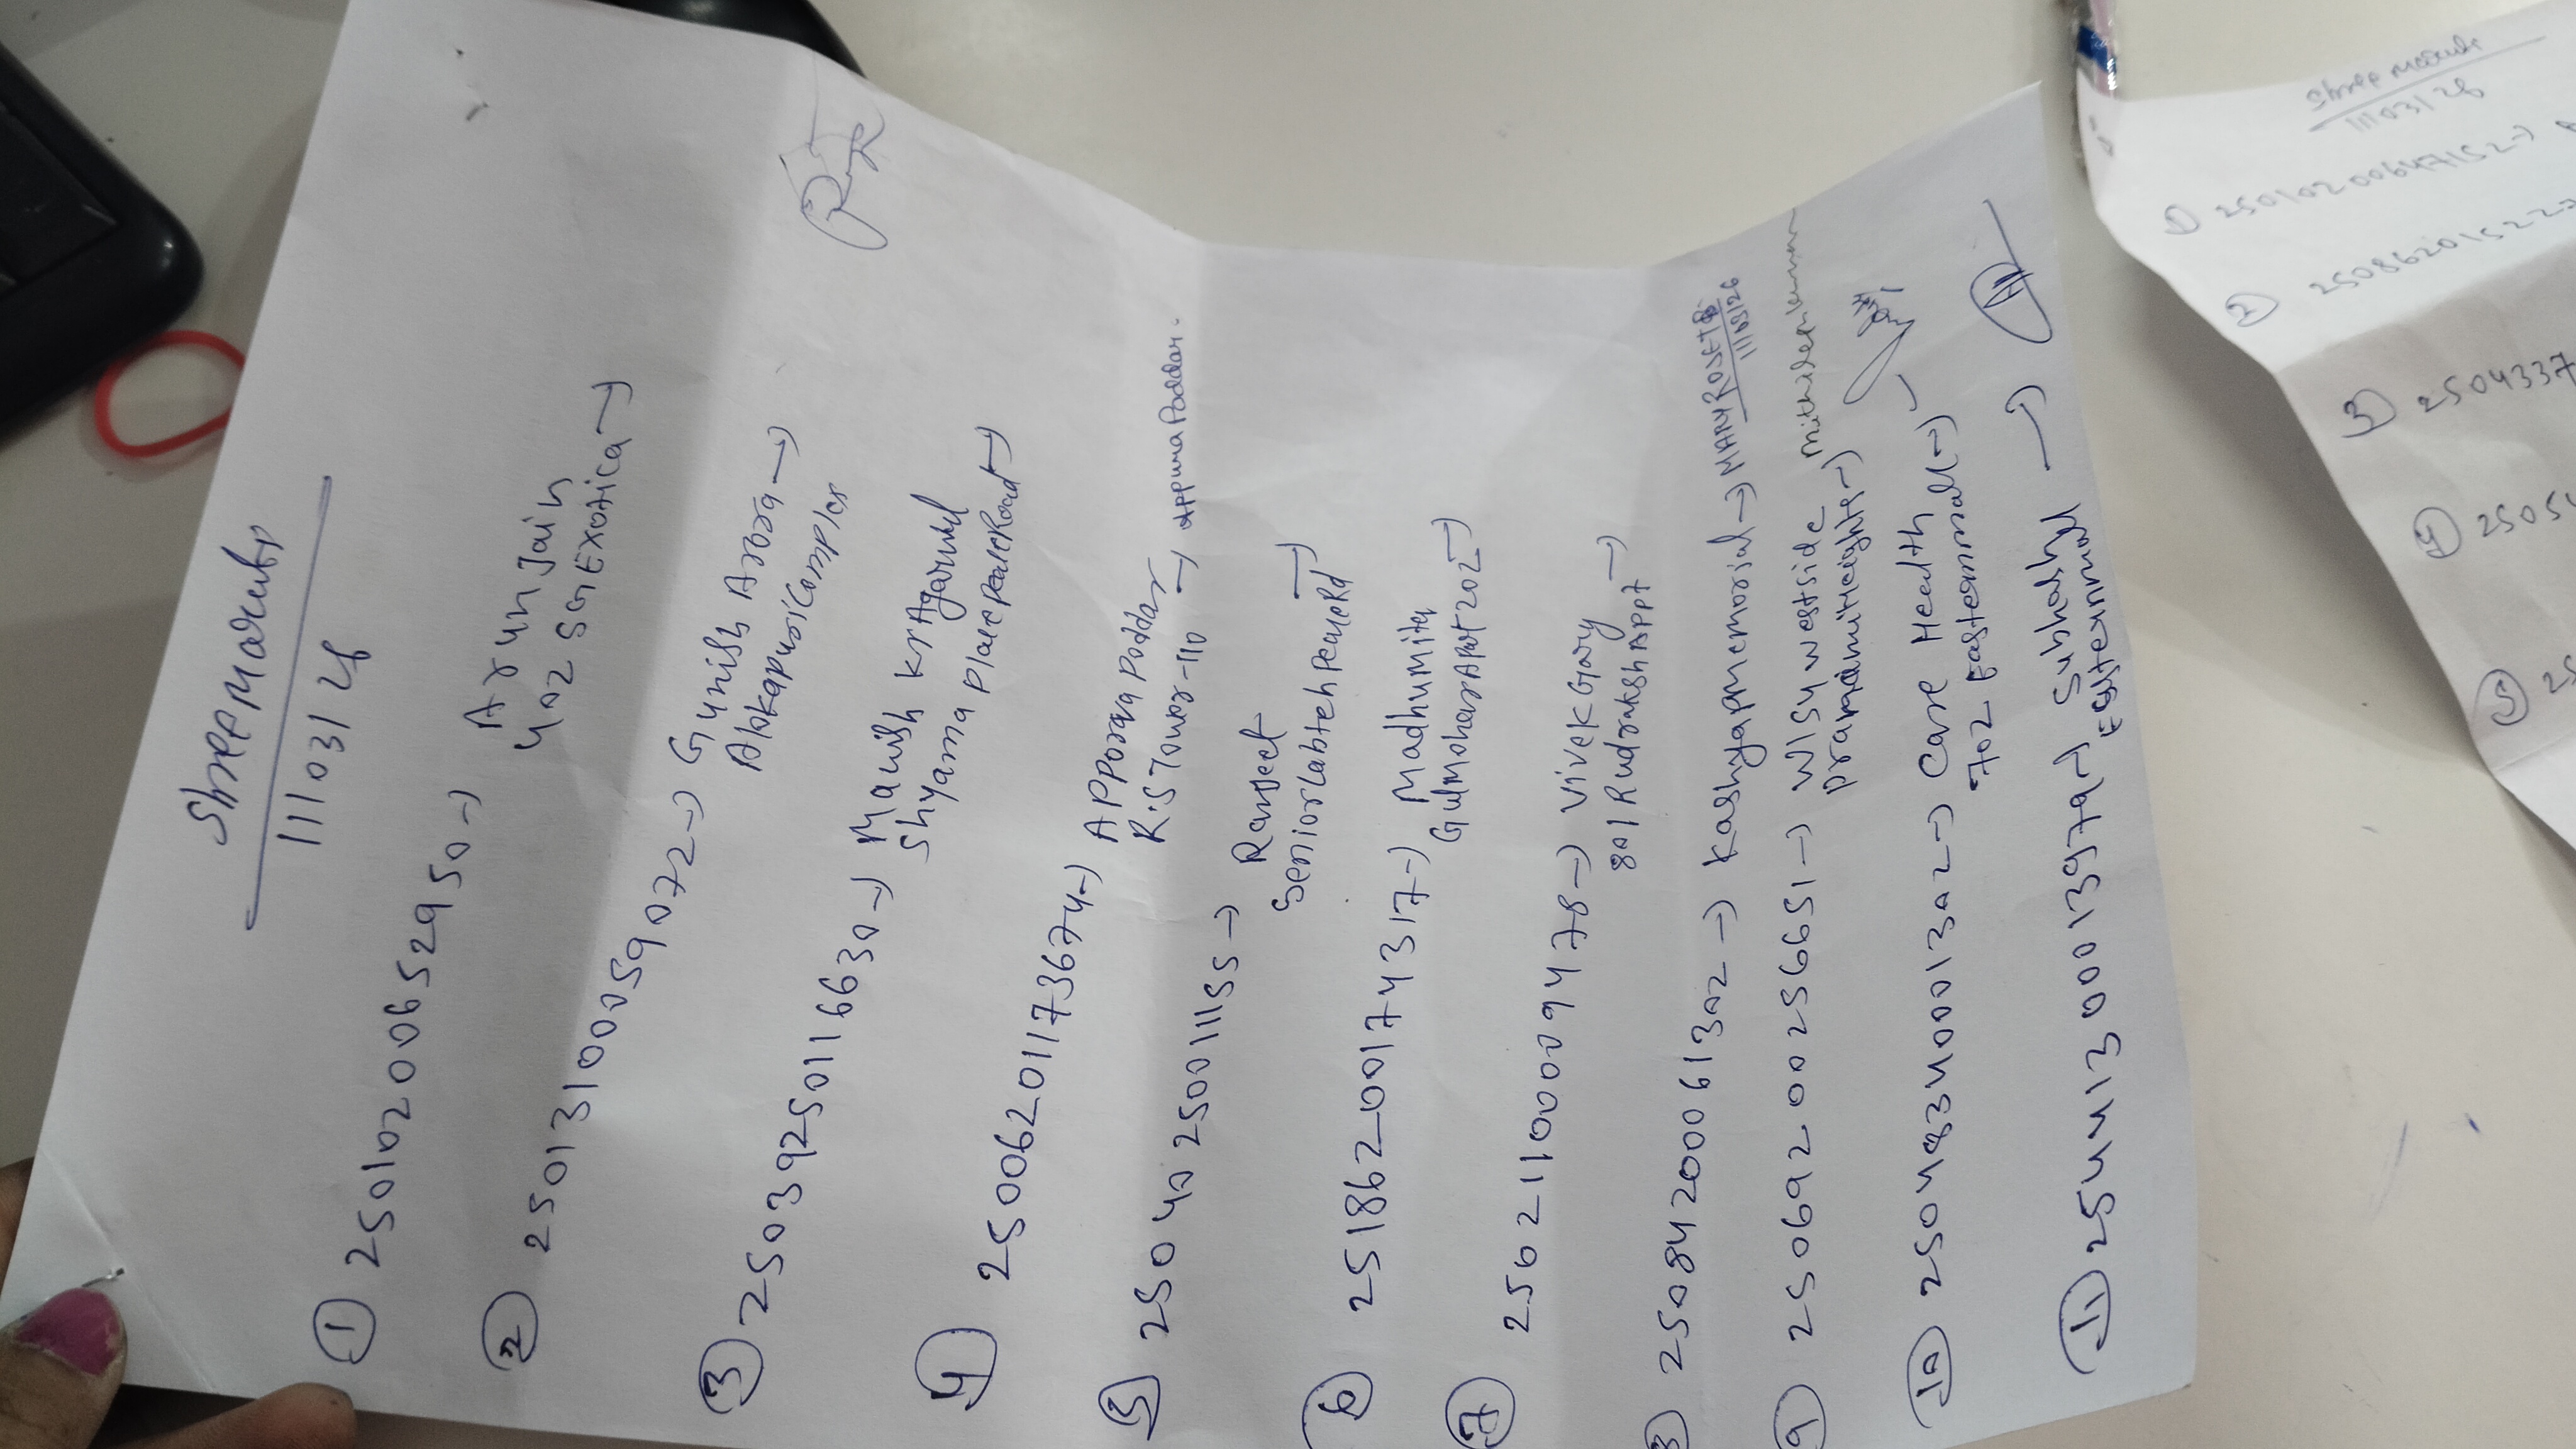 Shree Maruti
11/03/26
① 250102006529 50 → Arun Jain
402 SG Exotica →
② 25013100059072 → Gunish Arora →
Alokapuri Complex
③ 2503925011 6630 → Manish kr Agarwal
Shyama Place Peace Road →
④ 25006201173674 → Apporava Poddar
R.S Tower-110 → Appurva Poddar.
⑤ 25040250011155 → Ranjeet
Senior labteh Peace Rd →
⑥ 25186200174317 → Madhumita
Gulmohar Apart 202 →
⑦ 25621100009478 → Vivek Garg
801 Rudraksh Appt →
8 2508420006 1302 → Kashyap memorial → MARY
11/03/26
⑨ 25069200256651 → W/SY westside
pranamiheights →
⑩ 25048340001302 → Care Health
702 Eastern mall →
⑪ 25441300013979 → Subhashyl →
Eastern mall
Shree Maruti
11/03/26
① 25010200647152 →
② 2508620152
③ 2504337
④ 2505
⑤ 25